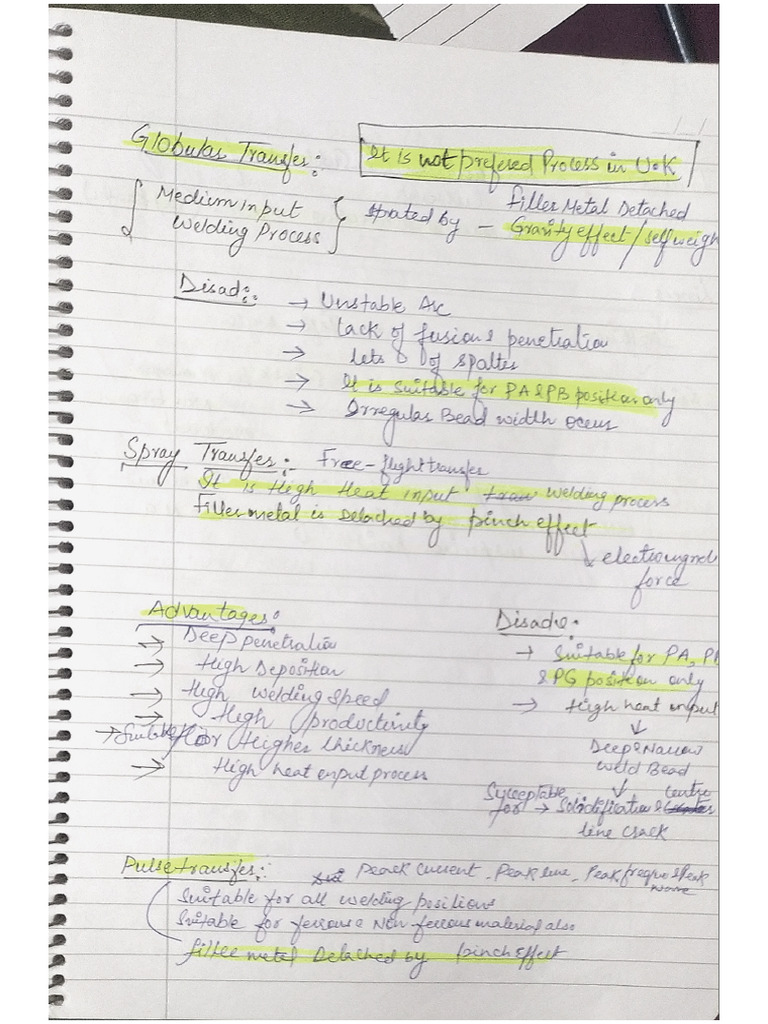 Globular Transfer:
It is not prefered Process in U.K
{ Medium input
Welding Process }
by -
filler Metal Detached
Gravity effect/selfweigh
Disad::
→ Unstable Arc
→ Lack of fusion & penetration
→ of spatter
→ It is suitable for PA & PB position only
→ Irregular Bead width occurs
Spray Transfer:- Free-flight transfer
It is High Heat input welding process
Filler metal is Detached by pinch effect
force
Advantages:
→ Deep penetration
→ High Deposition
→ High welding speed
→ High productivity
→ Suitable for Higher thickness
→ High heat input process
Disadv:
→ Suitable for PA, P
& PG position only
→ High heat input
↓
Deep & Narrow
Weld Bead
↓
for → Solidification & centre
line crack
Pulse transfer: Peak current - Peak time - Peak & Peak
Suitable for all welding positions
Suitable for ferrous & Non-ferrous material also
filler metal Detached by pinch effect